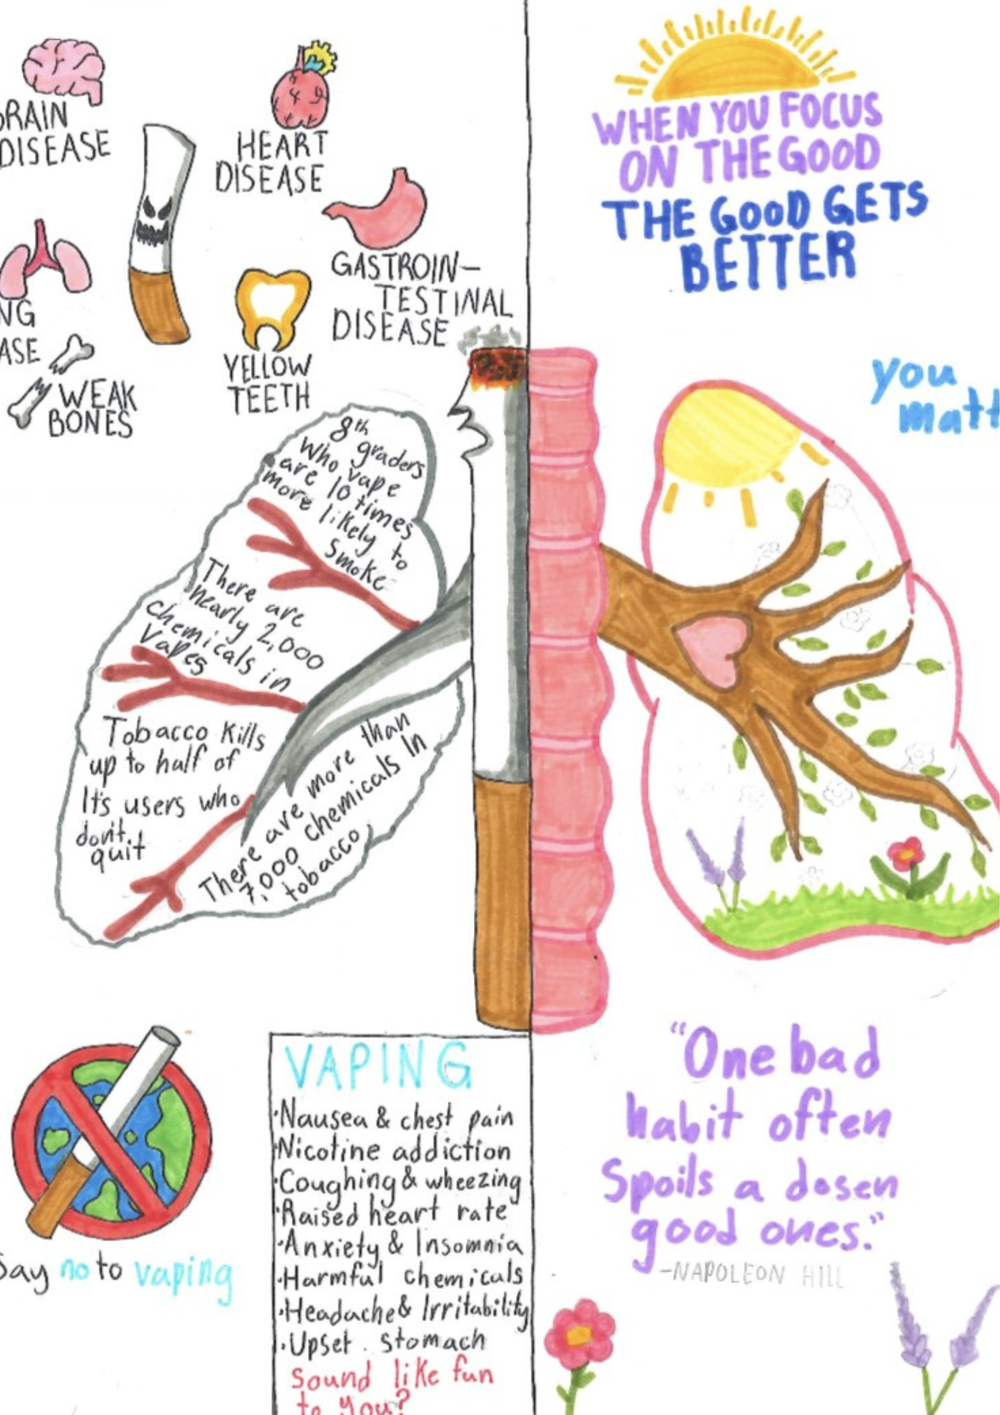 BRAIN
DISEASE
HEART
DISEASE
GASTROIN-
TESTINAL
DISEASE
NG
ASE
WEAK
BONES
YELLOW
TEETH
8th
graders
who vape
are 10 times
more likely to
smoke
There are
nearly 2,000
chemicals in
Vapes
Tobacco Kills
up to half of
It's users who
don't
quit
There are more than
7,000 chemicals In
tobacco
Say no to vaping
VAPING
·Nausea & chest pain
·Nicotine addiction
·Coughing & wheezing
·Raised heart rate
·Anxiety & Insomnia
·Harmful chemicals
·Headache & Irritability
·Upset stomach
Sound like fun
to you?
WHEN YOU FOCUS
ON THE GOOD
THE GOOD GETS
BETTER
you
matt
"One bad
habit often
Spoils a dosen
good ones."
-NAPOLEON HILL